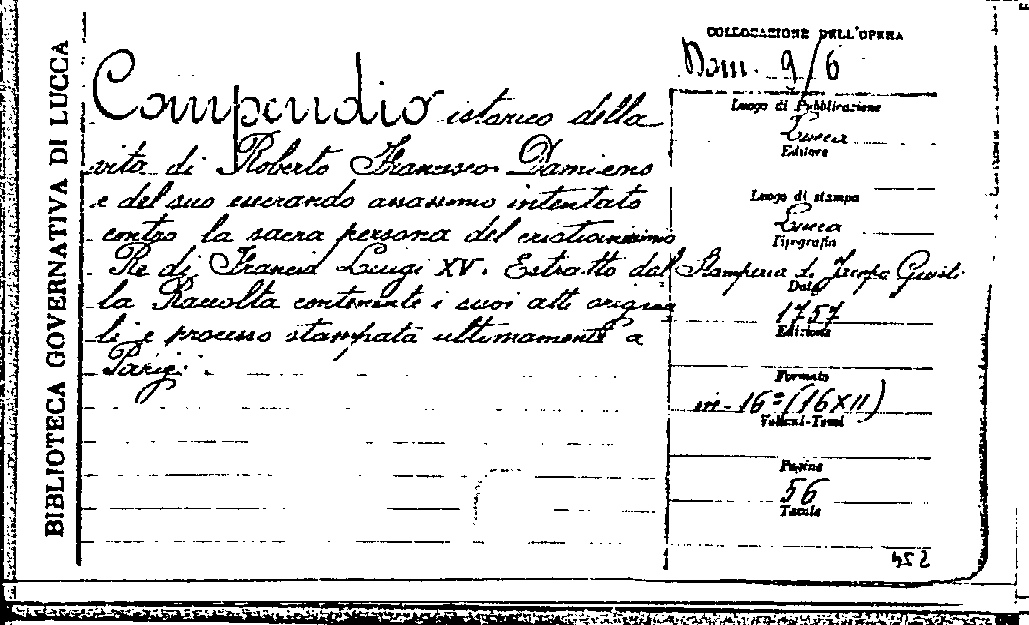 BIBLIOTECA GOVERNATIVA DI LUCCA
Compendio istorico della
vita di Roberto Francesco Damiens
e del suo esecrando assassinio intentato
contro la sacra persona del cristianissimo
Re di Francia Luigi XV. Estratto dal
la Raccolta contenente i suoi atti origina
li e processo stampata ultimamente a
Parigi.
COLLOCAZIONE DELL'OPERA
Dom. 9/6
Luogo di Pubblicazione
Lucca
Editore
Luogo di stampa
Lucca
Tipografia
Stamperia di Jacopo Giusti
Data
1757
Edizione
Formato
in-16º (16X11)
Volumi-Tomi
Pagine
56
Tavole
452